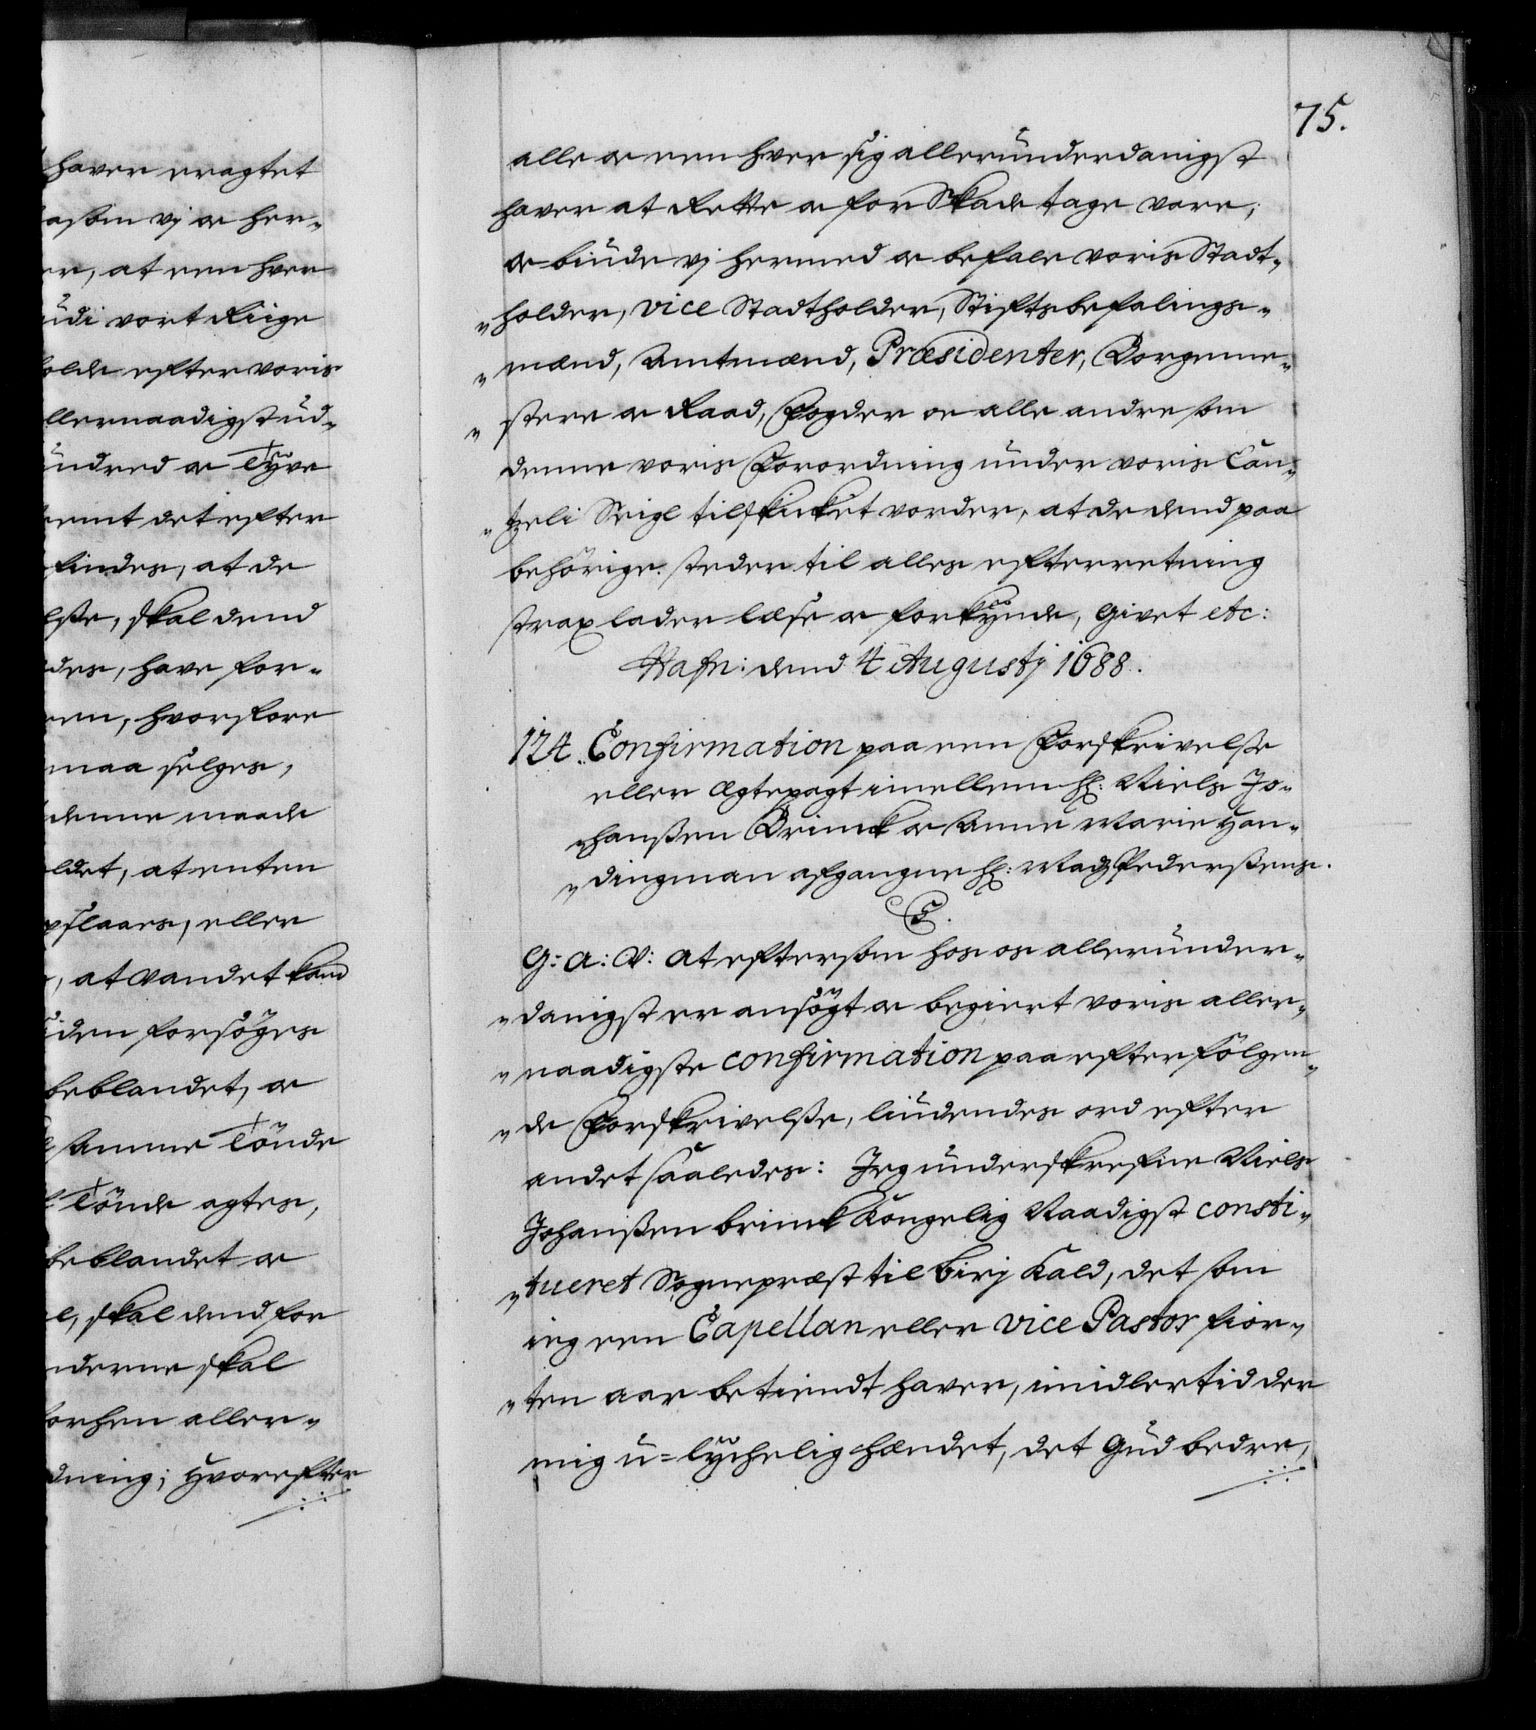 haver eragtet
asom vj oc her„
er, at een hver
udi vort Riige
olde efter voris
llernaadigst ud„
undred oc Tyve
temt det efter
findes, at de
lsse, skal dend
des, have for„
een, hvorfore
maa selges,
denne maade
ldet, at enten
pslaaes, eller
, at Vandet kand
iden forsöges
beblandet, oc
Amme Tönde
Tönde agtes,
beblandet oc
l, skal dend for
nderne skal
orhen aller„
dning; Hvorefter
75.
alle oc een hver sig allerunderdanigst
haver at Rette oc for Skade tage vare;
oc biude vj hermed oc befale voris Stadt„
„holder, Vice Stadtholder, Stiftsbefalings„
„mænd, Amtmænd, Præsidenter, Borgeme„
„stere oc Raad, Fogder oc alle andre som
denne voris Forordning under voris Can„
„tzeli Seigl tilskicket vorder, at de dend paa
behörige steder til alles efterretning
strax lader læse oc forkynde, Givet etc:
Hafn: dend 4 Augustj 1688.
124. Confirmation paa een Forskrivelsse
eller Ægtepagt imellem Hr: Niels Jo„
„hanssen Brinck oc Anne Marie Han„
„dingman afgangne Hr: Madtz Pederssens.
G: A: V: At eftersom hos os allerunder„
„danigst er ansögt oc begiert voris aller„
„naadigste confirmation paa efterfölgen„
„de Forskrivelsse, liudendes ord efter
andet saaledes: Jeg underskrefne Niels
Johanssen brinck Kongelig Naadigst consti„
„tueret Sognepræst til Birj Kald, det som
ieg een Capellan eller Vice Pastor fior„
„ten aar betiendt haver, imidlertid der
mig u=lychelig hændet, det Gud bedre,